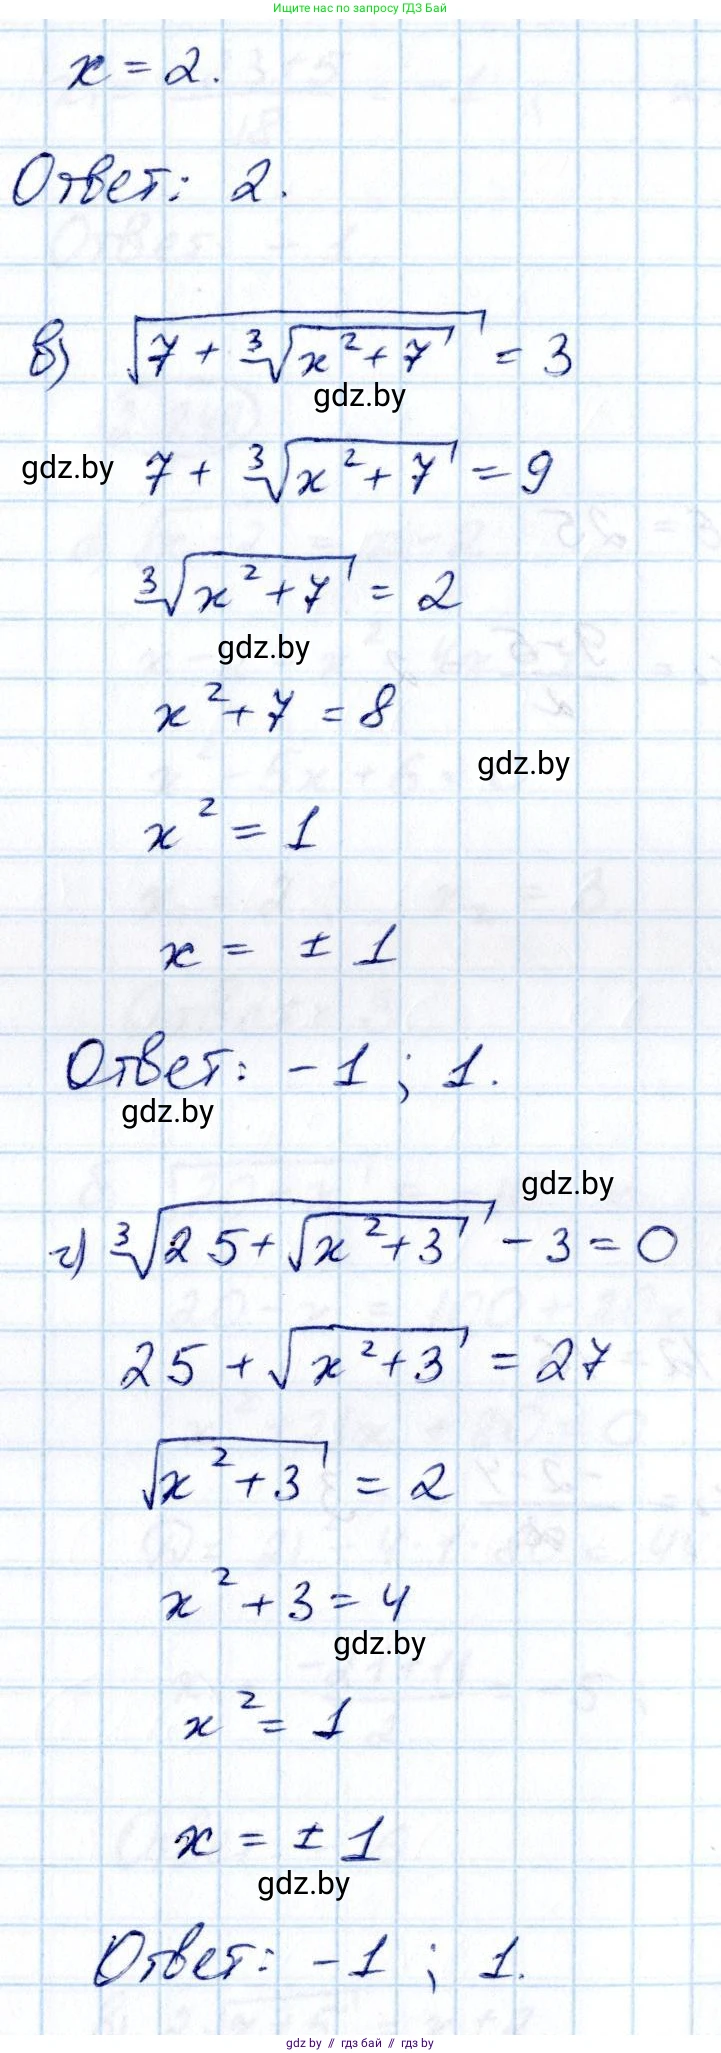 Ищите нас по запросу ГДЗ Бай
x = 2.
Ответ: 2.
в) √(7 + ∛(x² + 7)) = 3
gdz.by
gdz.by 7 + ∛(x² + 7) = 9
∛(x² + 7) = 2
gdz.by
x² + 7 = 8
gdz.by
x² = 1
x = ± 1
Ответ: -1 ; 1.
gdz.by
gdz.by
г) ∛(25 + √(x² + 3)) - 3 = 0
25 + √(x² + 3) = 27
√(x² + 3) = 2
x² + 3 = 4
gdz.by
x² = 1
x = ± 1
gdz.by
Ответ: -1 ; 1.
gdz.by // гдз бай // гдз by